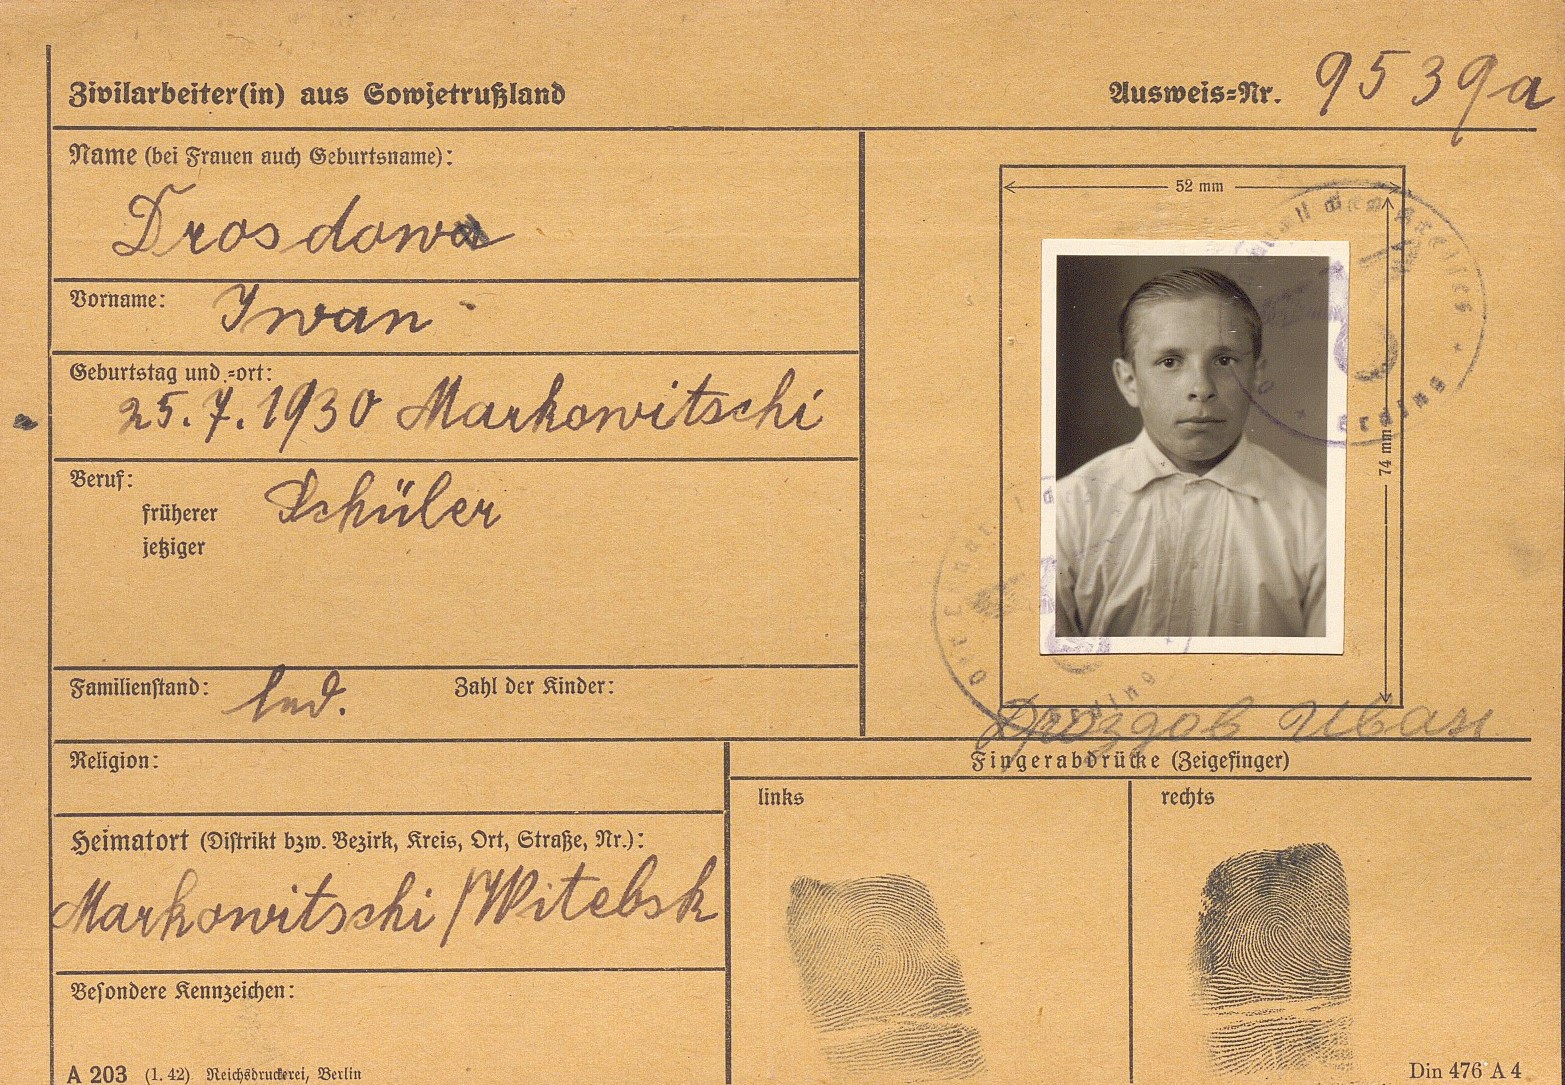 Zivilarbeiter(in) aus Sowjetrußland
Ausweis=Nr. 9539a
Name (bei Frauen auch Geburtsname):
Drosdowa
Vorname: Iwan
Geburtstag und =ort:
25.7.1930 Markowitschi
Beruf:
früherer Schüler
jetziger
Familienstand: led. Zahl der Kinder:
Religion:
Heimatort (Distrikt bzw. Bezirk, Kreis, Ort, Straße, Nr.):
Markowitschi/Witebsk
Besondere Kennzeichen:
A 203 (1. 42) Reichsdruckerei, Berlin
52 mm
74 mm
Erding
Дроздов Иван
Fingerabdrücke (Zeigefinger)
links
rechts
Din 476 A 4